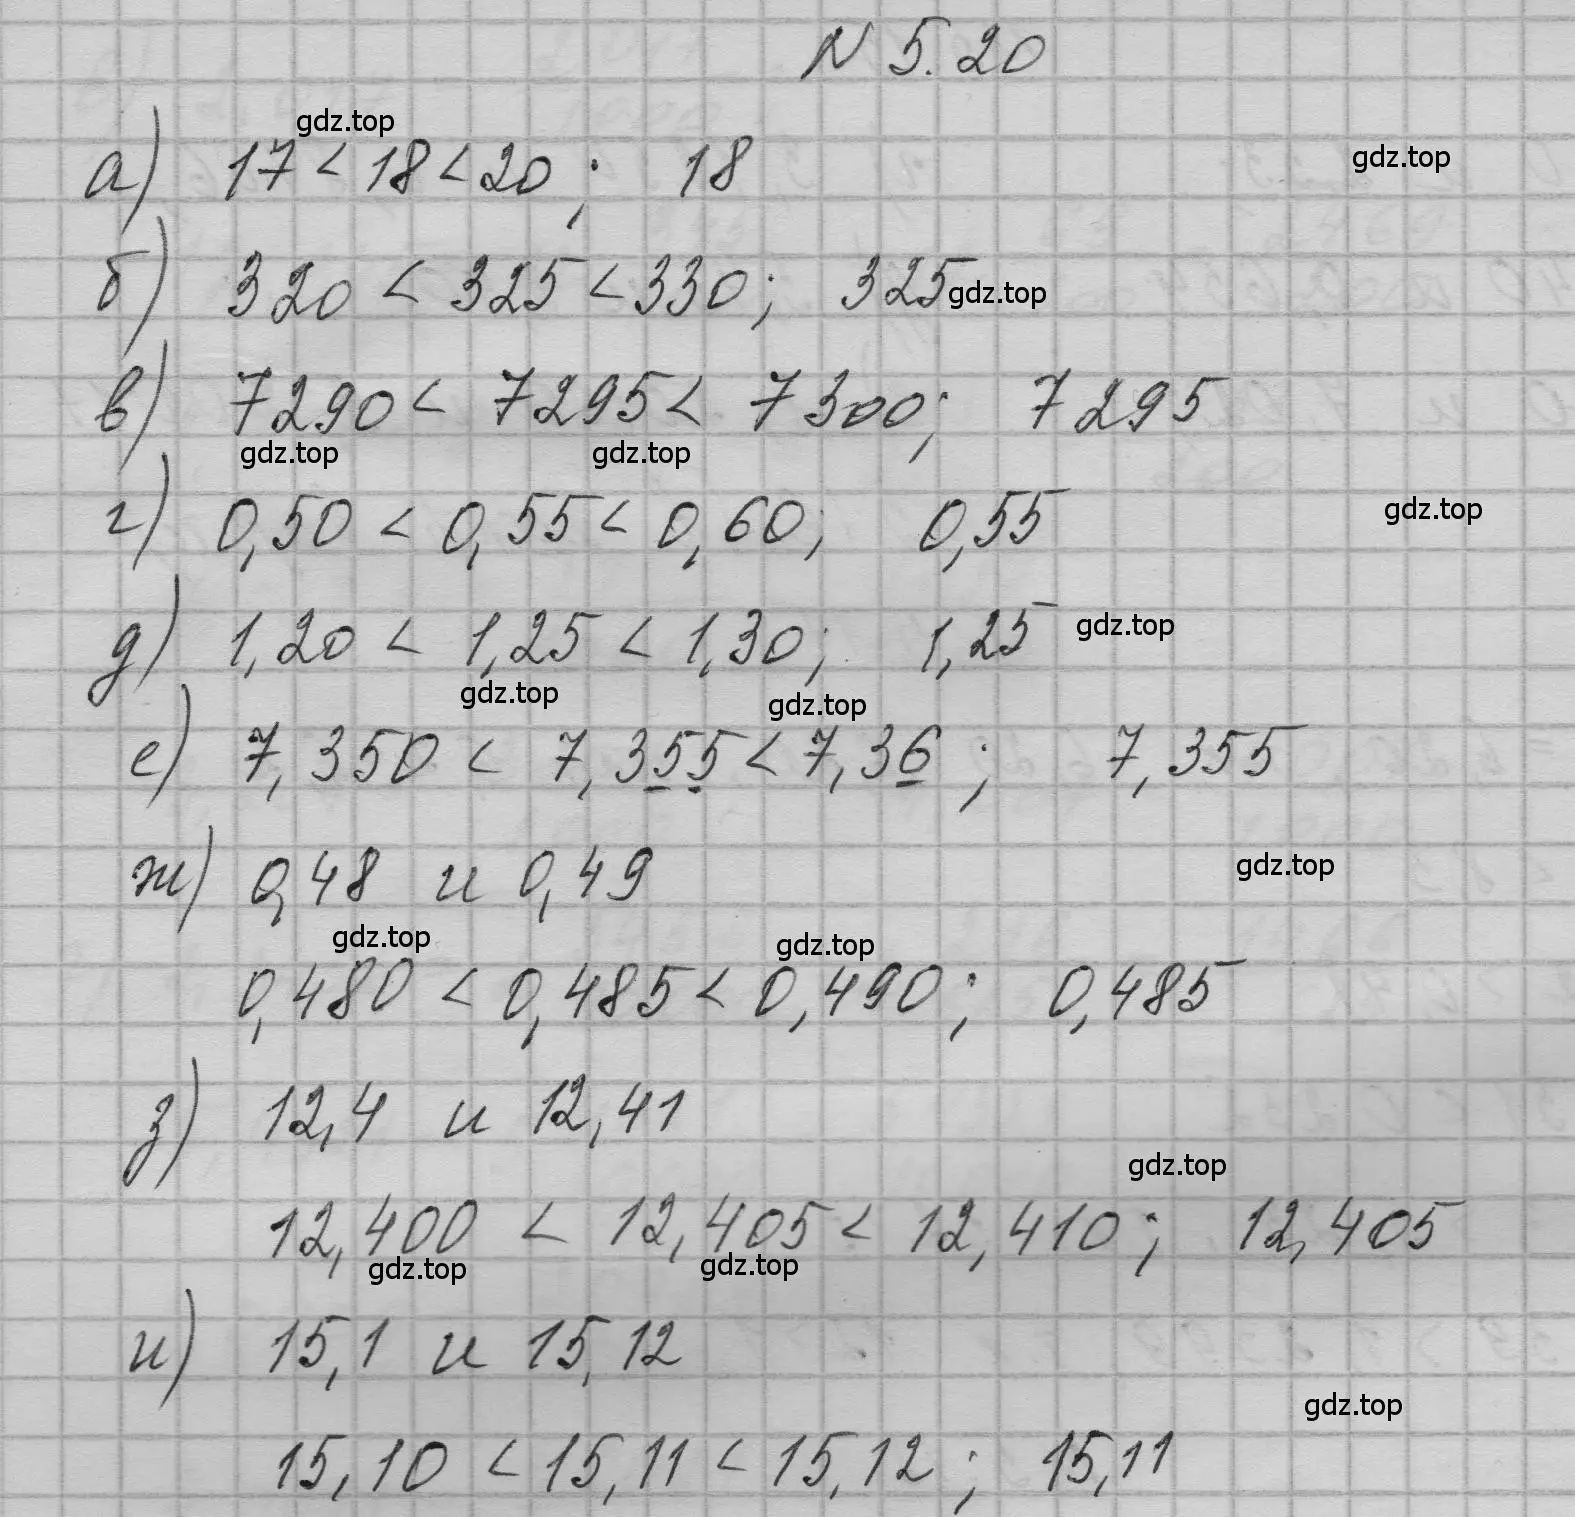 N 5.20
gdz.top
а) 17 < 18 < 20 ; 18
gdz.top
б) 320 < 325 < 330; 325
gdz.top
в) 7290 < 7295 < 7300; 7295
gdz.top gdz.top
г) 0,50 < 0,55 < 0,60; 0,55
gdz.top
д) 1,20 < 1,25 < 1,30; 1,25
gdz.top
gdz.top gdz.top
е) 7,350 < 7,355 < 7,36 ; 7,355
ж) 0,48 и 0,49
gdz.top
gdz.top gdz.top
0,480 < 0,485 < 0,490; 0,485
з) 12,4 и 12,41
gdz.top
12,400 < 12,405 < 12,410; 12,405
gdz.top gdz.top
и) 15,1 и 15,12
gdz.top
15,10 < 15,11 < 15,12 ; 15,11